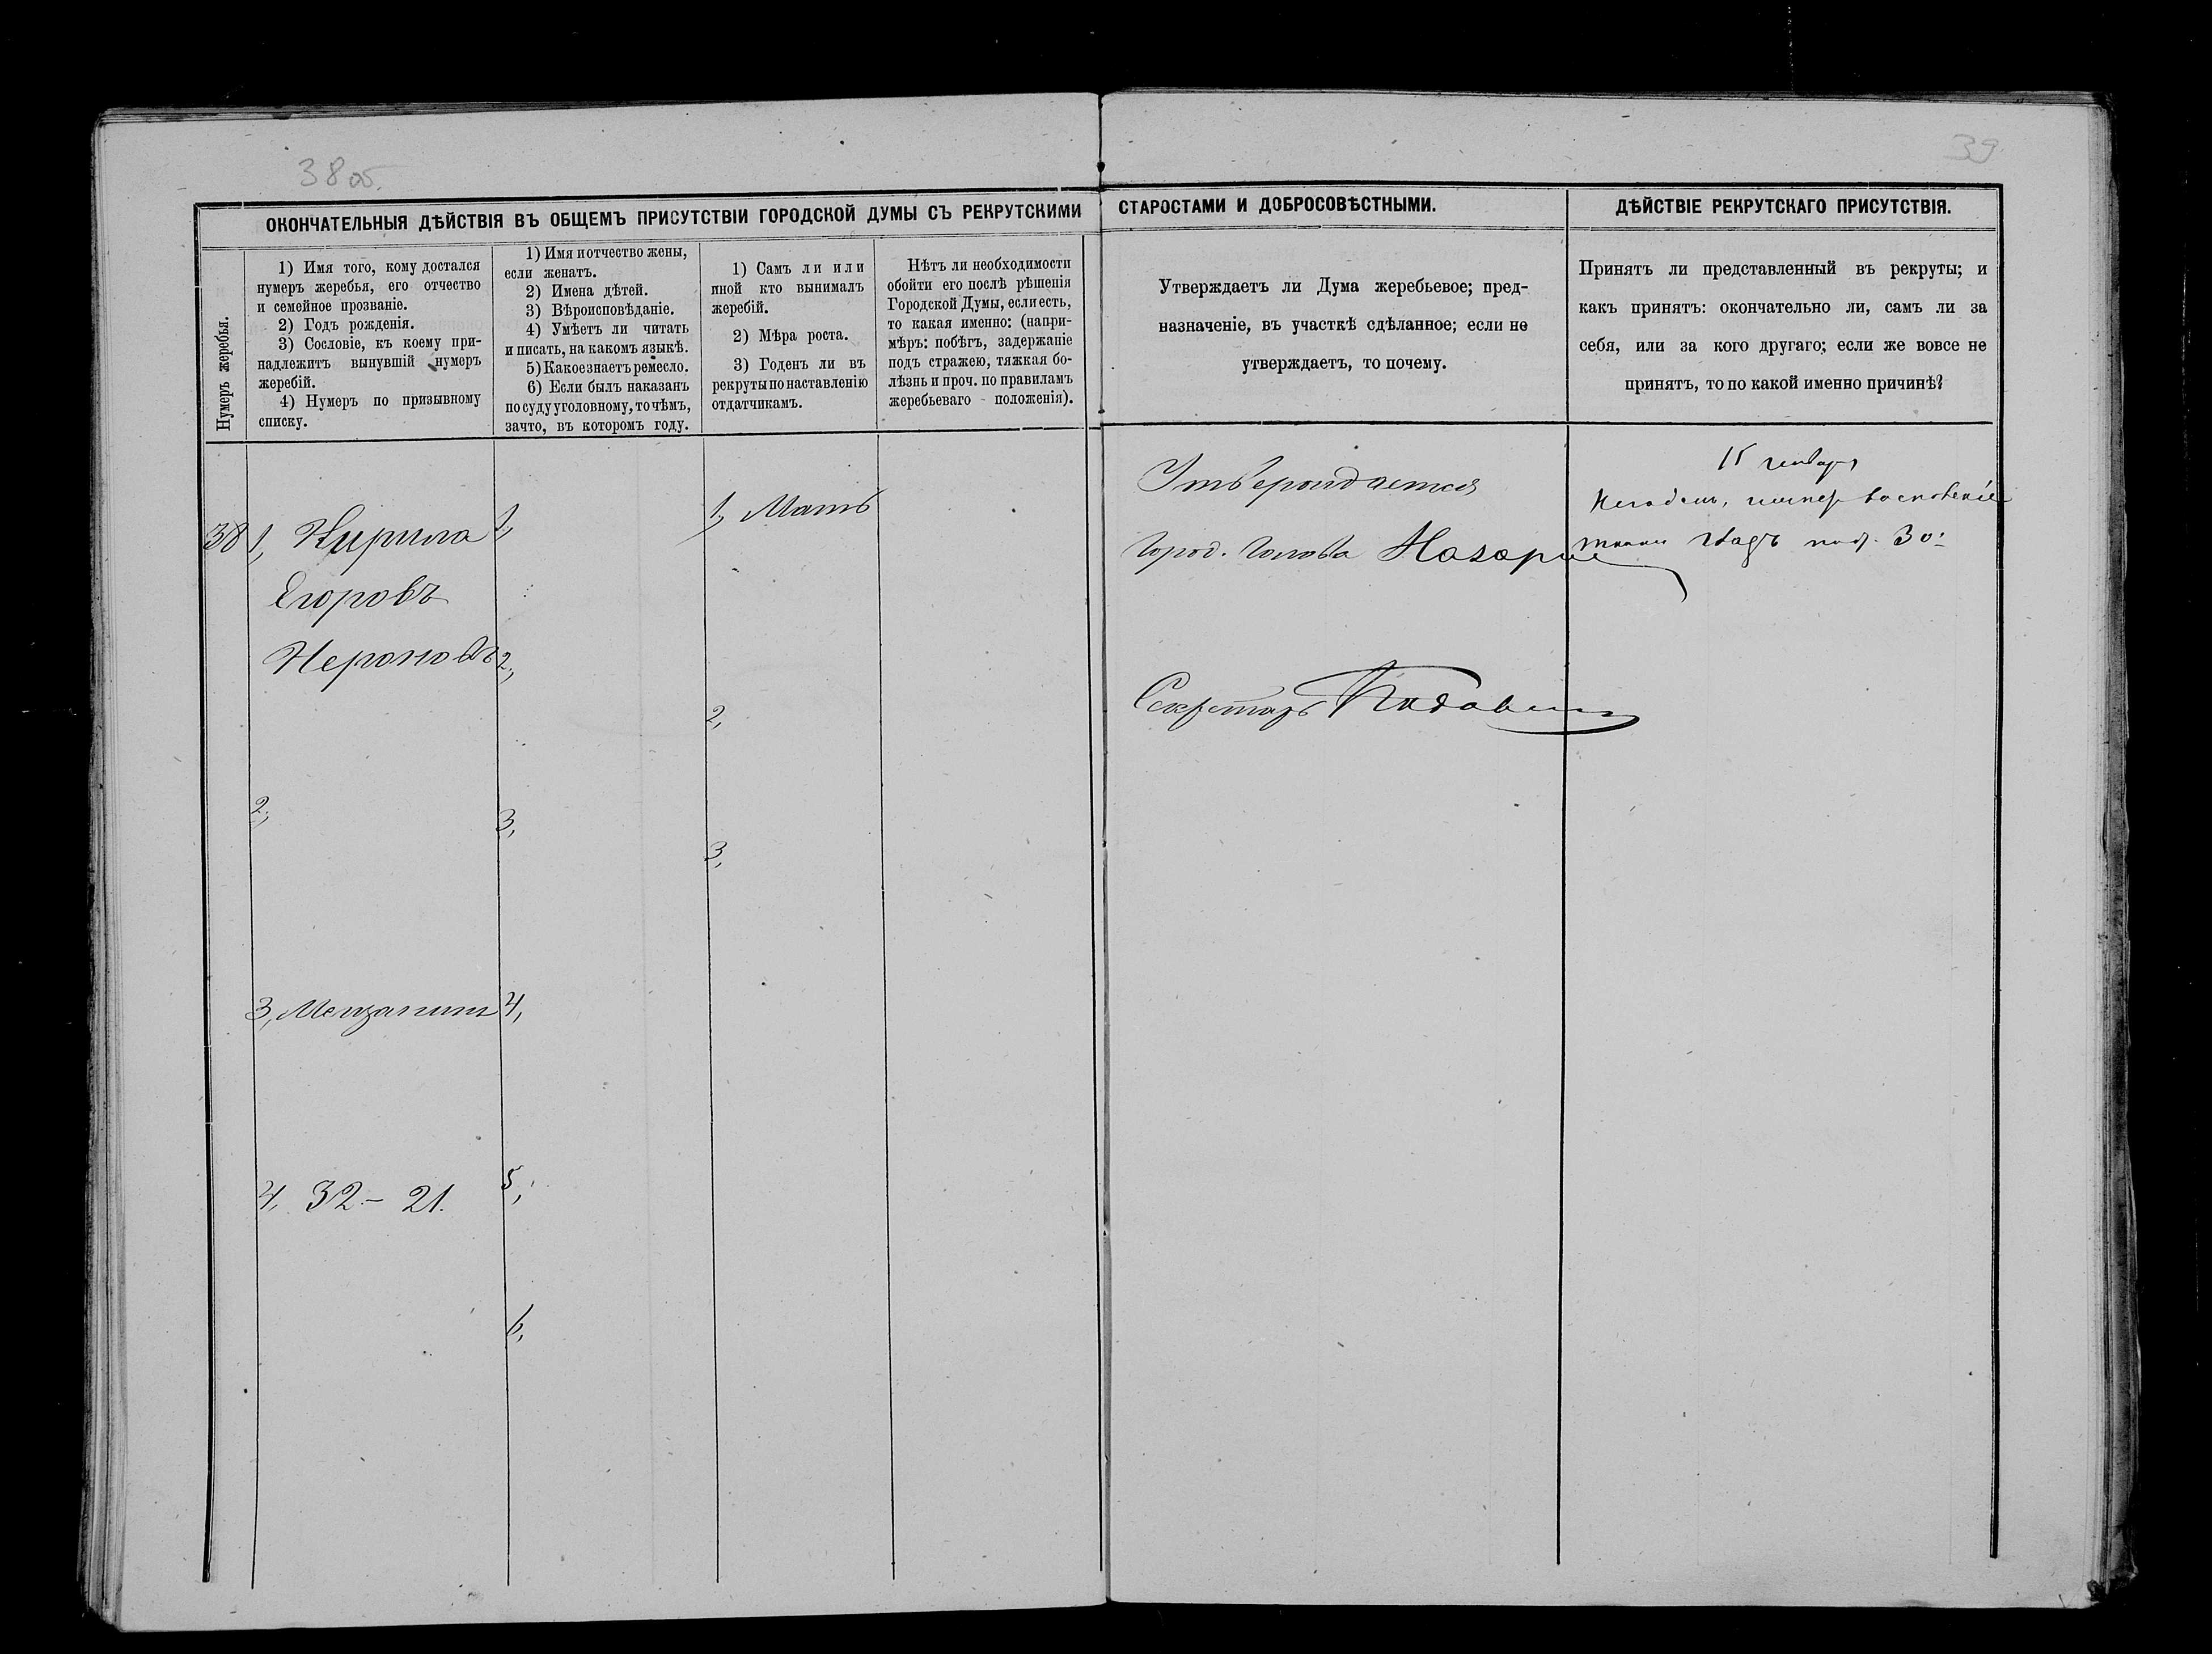 38 об.
39
ОКОНЧАТЕЛЬНЫЯ ДѢЙСТВІЯ ВЪ ОБЩЕМЪ ПРИСУТСТВІИ ГОРОДСКОЙ ДУМЫ СЪ РЕКРУТСКИМИ СТАРОСТАМИ И ДОБРОСОВѢСТНЫМИ.
ДѢЙСТВІЕ РЕКРУТСКАГО ПРИСУТСТВІЯ.
Нумеръ жеребья.
1) Имя того, кому достался
нумеръ жеребья, его отчество
и семейное прозваніе.
2) Годъ рожденія.
3) Сословіе, къ коему при-
надлежитъ вынувшій нумеръ
жеребій.
4) Нумеръ по призывному
списку.
1) Имя и отчество жены,
если женатъ.
2) Имена дѣтей.
3) Вѣроисповѣданіе.
4) Умѣетъ ли читать
и писать, на какомъ языкѣ.
5) Какое знаетъ ремесло.
6) Если былъ наказанъ
по суду уголовному, то чѣмъ,
за что, въ которомъ году.
1) Самъ ли или
иной кто вынималъ
жеребій.
2) Мѣра роста.
3) Годенъ ли въ
рекруты по наставленію
отдатчикамъ.
Нѣтъ ли необходимости
обойти его послѣ рѣшенія
Городской Думы, если есть,
то какая именно: (напри-
мѣръ: побѣгъ, задержаніе
подъ стражею, тяжкая бо-
лѣзнь и проч. по правиламъ
жеребьеваго положенія).
Утверждаетъ ли Дума жеребьевое; пред-
назначеніе, въ участкѣ сдѣланное; если не
утверждаетъ, то почему.
Принятъ ли представленный въ рекруты; и
какъ принятъ: окончательно ли, самъ ли за
себя, или за кого другаго; если же вовсе не
принятъ, то по какой именно причинѣ?
38
1, Кирила
Егоровъ
Нероновъ
2,
3, Мещанинъ
4, 32 – 21.
1,
2,
3,
4,
5,
6,
1, Мать
2,
3,
Утверждается
Город. Голова
Секретарь
15 генваря
30